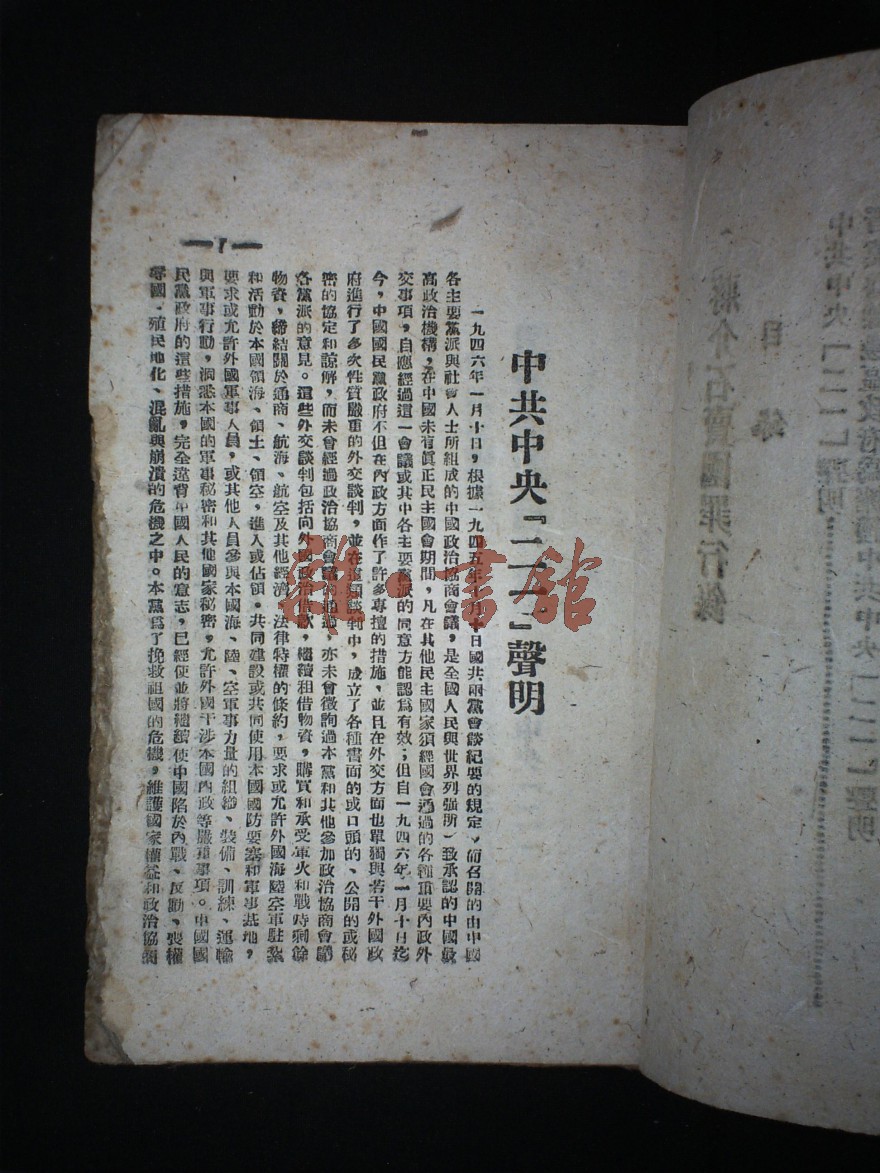 中共中央『二一』聲明
一九四六年一月十日，根據一九四五年十月十日國共兩黨會談紀要的規定，而召開的由中國
各主要黨派與社會人士所組成的中國政治協商會議，是全國人民與世界列強所一致承認的中國最
高政治機構，在中國未有眞正民主國會期間，凡在其他民主國家須經國會通過的各種重要內政外
交事項，自應經過這一會議或其中各主要黨派的同意方能認爲有效；但自一九四六年一月十日迄
今，中國國民黨政府不但在內政方面作了許多專擅的措施，並且在外交方面也單獨與若干外國政
府進行了多次性質嚴重的外交談判，並在這類談判中，成立了各種書面的或口頭的、公開的或秘
密的協定和諒解，而未曾經過政治協商會議的通過，亦未曾徵詢過本黨和其他參加政治協商會議
各黨派的意見。這些外交談判包括向外國政治借款，繼續租借物資，購買和承受軍火和戰時剩餘
物資，締結關於通商、航海、航空及其他經濟、法律特權的條約，要求或允許外國海陸空軍駐紮
和活動於本國領海、領土、領空，進入或佔領，共同建設或共同使用本國國防要塞和軍事基地，
要求或允許外國軍事人員，或其他人員參與本國海、陸、空軍事力量的組織、裝備、訓練、運輸
與軍事行動，洞悉本國的軍事秘密和其他國家秘密，允許外國干涉本國內政等嚴重事項。中國國
民黨政府的這些措施，完全違背中國人民的意志，已經使並將繼續使中國陷於內戰、反動、喪權
辱國、殖民地化、混亂與崩潰的危機之中。本黨爲了挽救祖國的危機，維護國家權益和政治協商
—1—
雜·書館